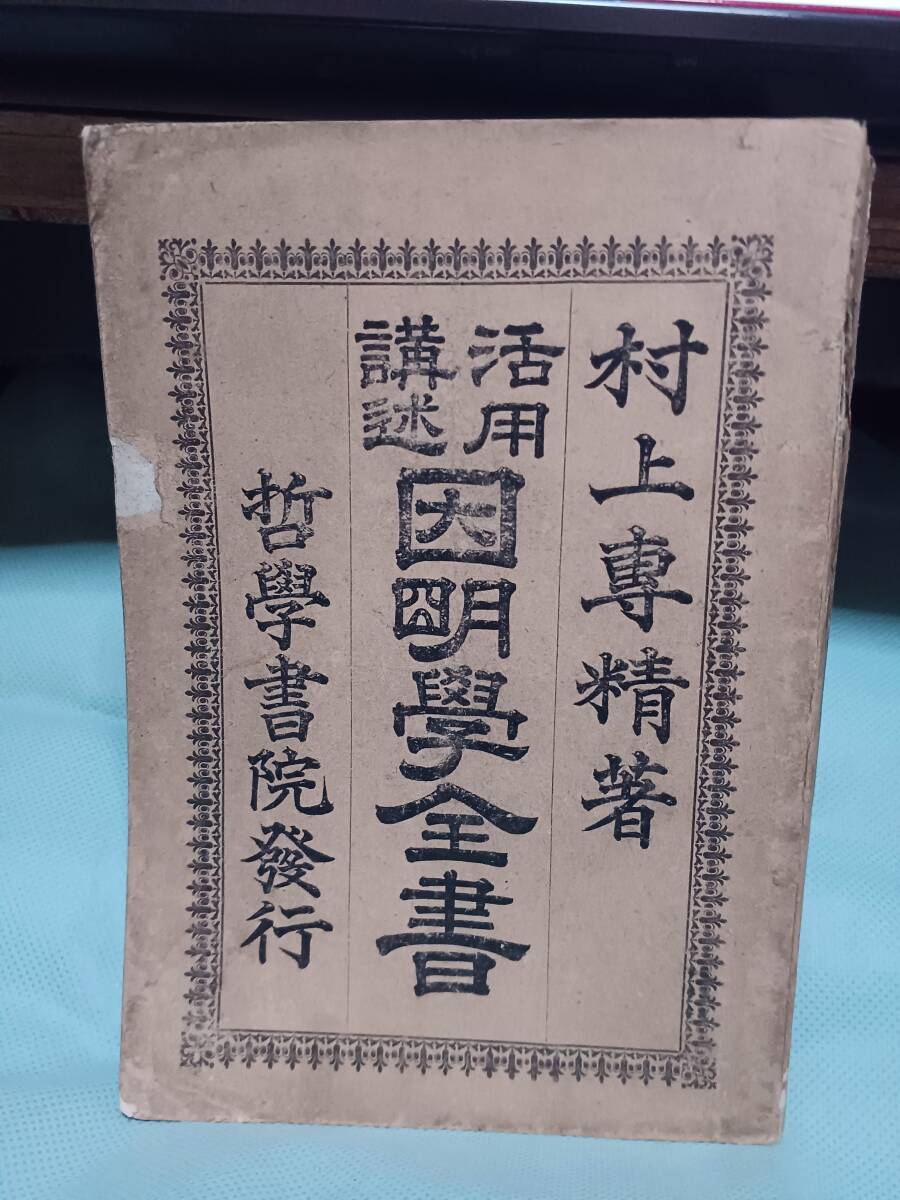 村上專精著
活用
講述
因明學全書
哲學書院發行